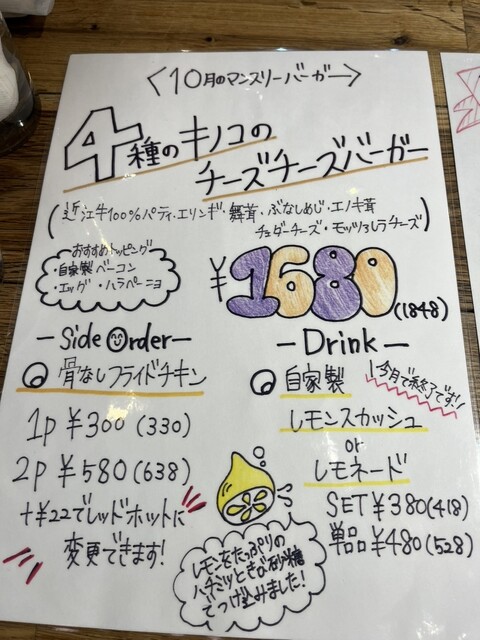 〈10月のマンスリーバーガー〉
4種のキノコの
チーズチーズバーガー
(近江牛100%パティ・エリンギ・舞茸・ぶなしめじ・エノキ茸
チェダーチーズ・モッツァレラチーズ)
おすすめトッピング
・自家製ベーコン
・エッグ・ハラペーニョ
¥1680(1848)
-Side Order-
骨なしフライドチキン
1p ¥300(330)
2p ¥580(638)
+¥22でレッドホットに
変更できます!
-Drink-
自家製
!今月で終了です!
レモンスカッシュ
or
レモネード
SET ¥380(418)
単品¥480(528)
レモンをたっぷりの
ハチミツときび砂糖
でつけ込みました!